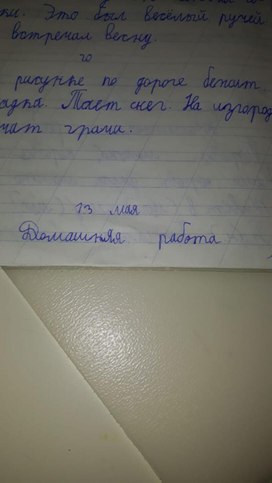 ки. Это был весёлый ручей
встречал весну.
рисунке по дороге бежит
Тает снег. На изгород
чат грачи.
13 мая
Домашняя работа